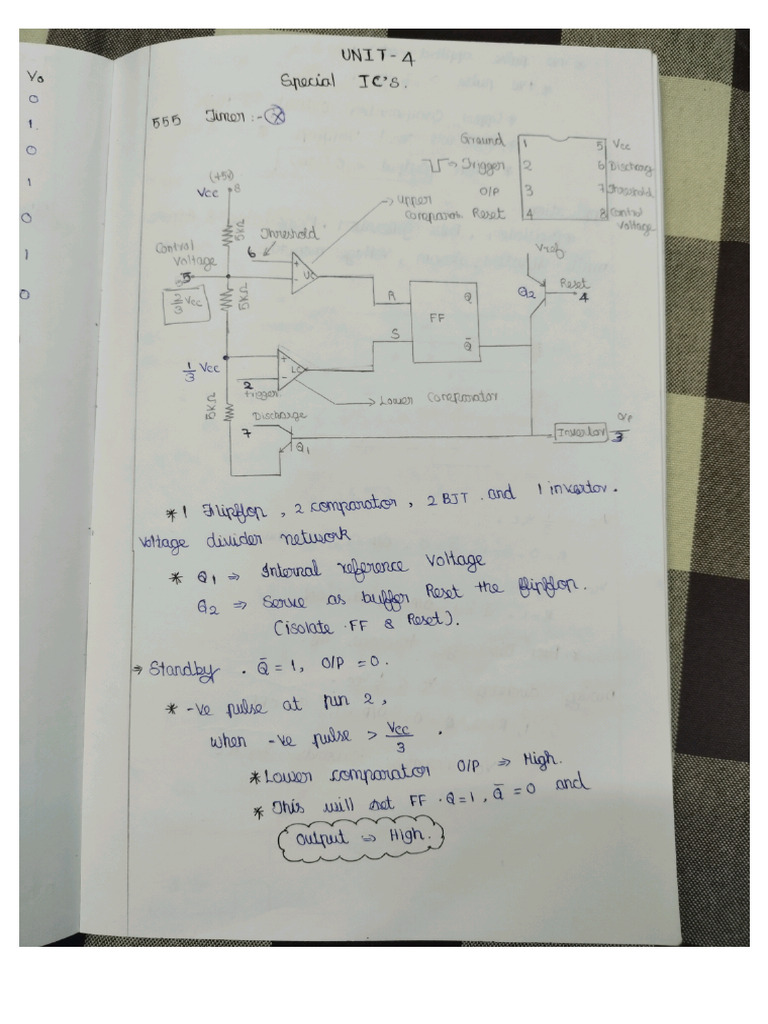 Vo
0
1
0
1
0
1
0
UNIT-4
Special IC's.
555 Timer :-
Ground 1 5 Vcc
Trigger 2 6 Discharg
O/P 3 7 Threshold
Reset 4 8 Control Voltage
(+5v)
Vcc 8
5KΩ
Threshold
6
upper comparator
Control Voltage
5
2/3 Vcc
5KΩ
+
-
UC
R
S
FF
Q
Q̄
Vref
Q2
Reset
4
1/3 Vcc
+
-
LC
2
Trigger
Lower Comparator
5KΩ
Discharge
7
Q1
Invertor
O/P
3
* 1 Flipflop , 2 comparator , 2 BJT . and 1 invertor.
Voltage divider network
* Q1 ⇒ Internal reference Voltage
Q2 ⇒ Serve as buffer Reset the flipflop.
(isolate . FF & Reset).
⇒ Standby . Q̄ = 1, O/P = 0.
* -ve pulse at pin 2,
when -ve pulse > Vcc/3 .
* Lower comparator O/P ⇒ High.
* This will set FF . Q=1, Q̄ = 0 and
Output ⇒ High.